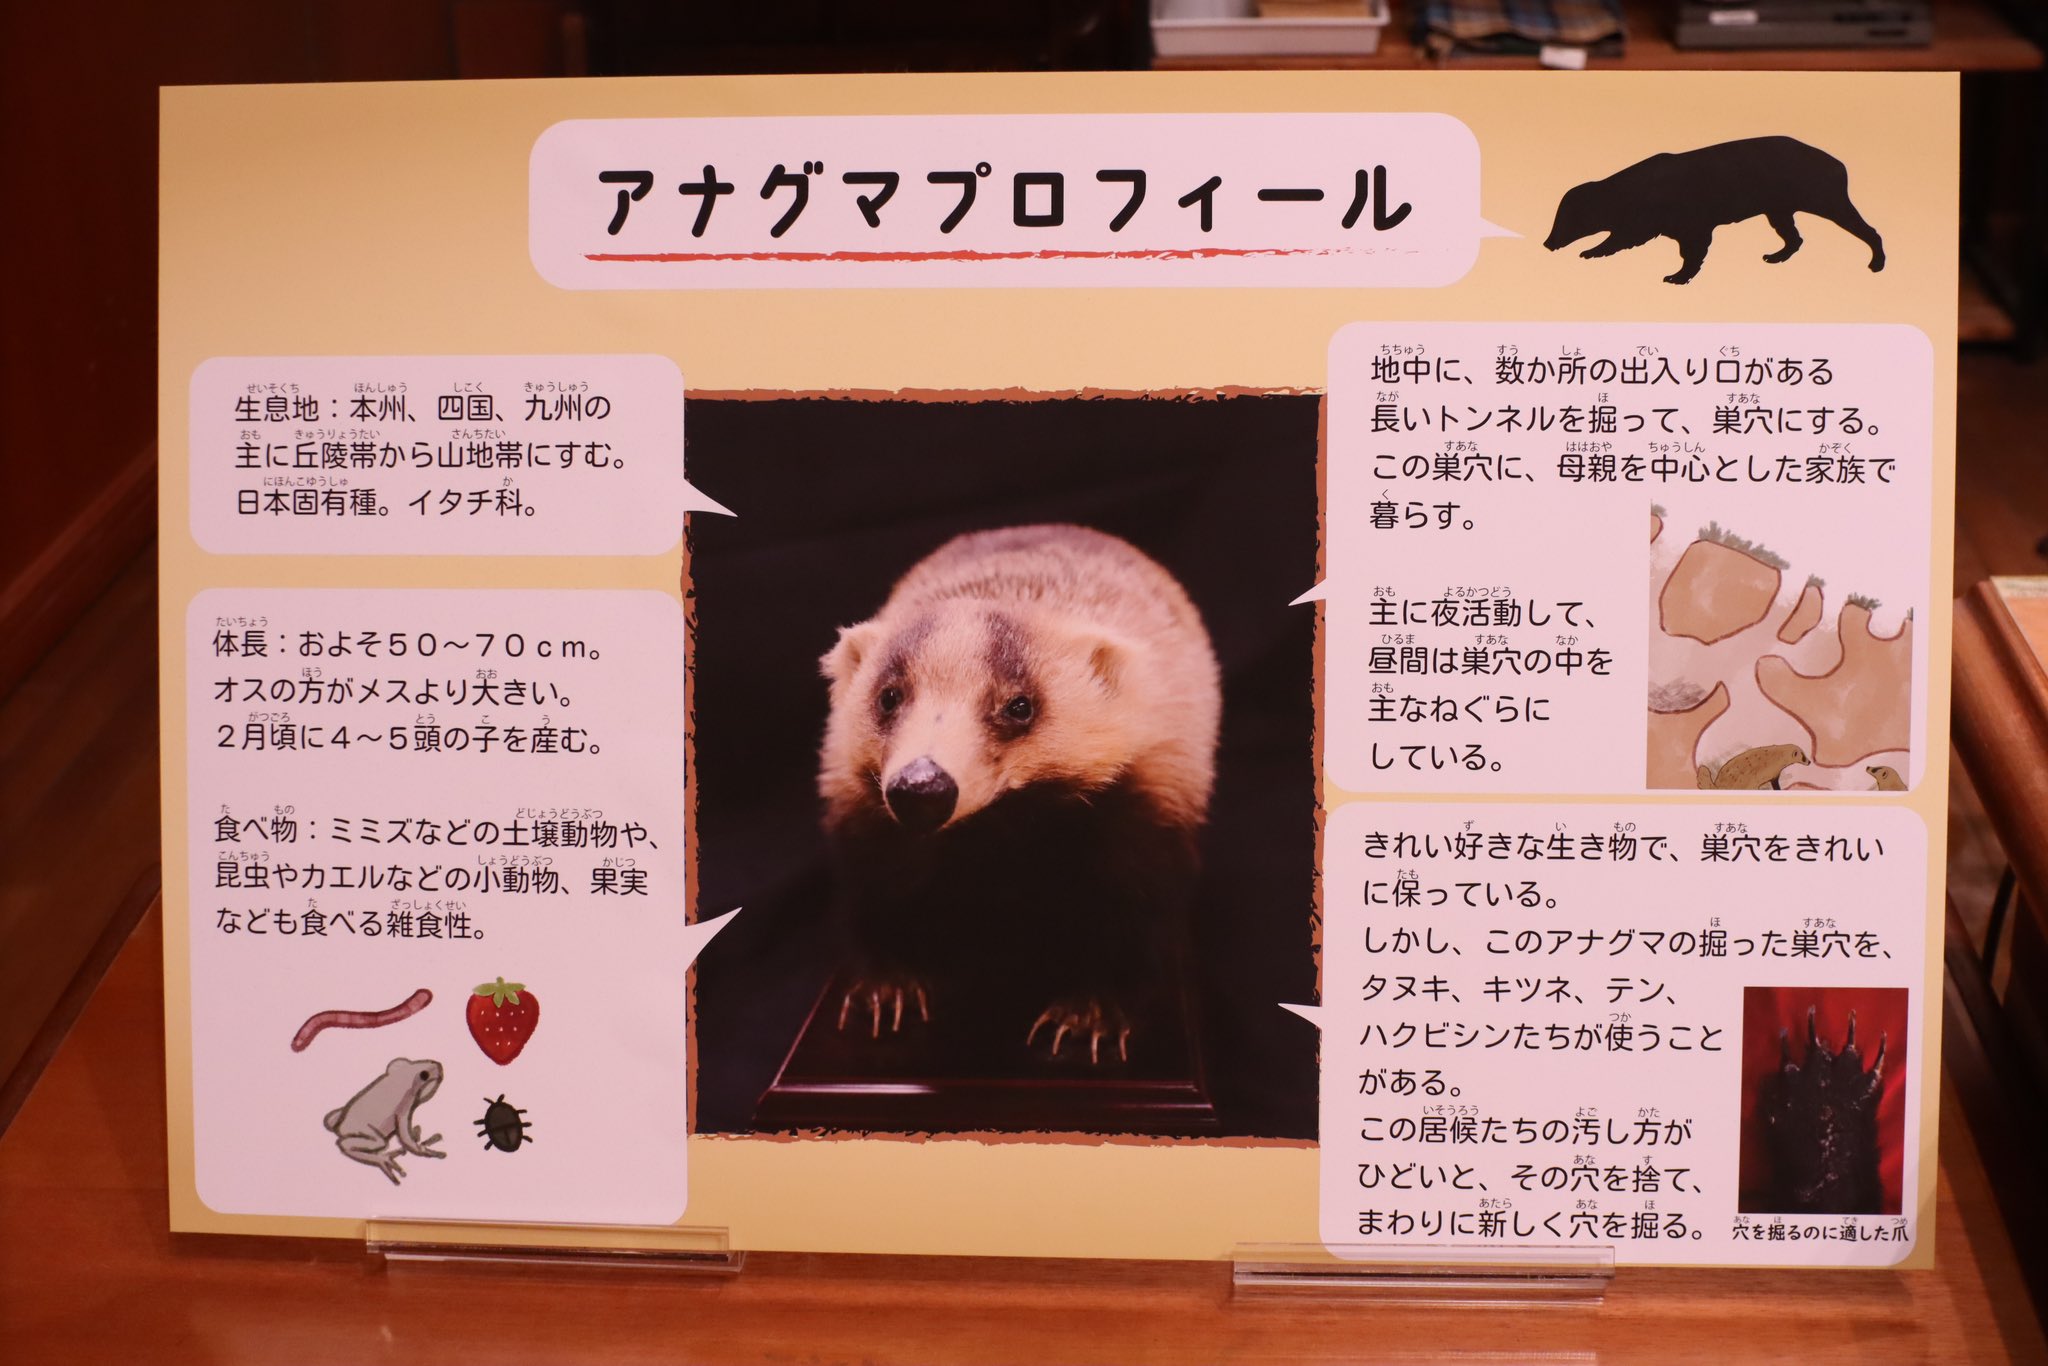 アナグマプロフィール
生息地：本州、四国、九州の
主に丘陵帯から山地帯にすむ。
日本固有種。イタチ科。
体長：およそ５０～７０ｃｍ。
オスの方がメスより大きい。
２月頃に４～５頭の子を産む。
食べ物：ミミズなどの土壌動物や、
昆虫やカエルなどの小動物、果実
なども食べる雑食性。
地中に、数か所の出入り口がある
長いトンネルを掘って、巣穴にする。
この巣穴に、母親を中心とした家族で
暮らす。
主に夜活動して、
昼間は巣穴の中を
主なねぐらに
している。
きれい好きな生き物で、巣穴をきれい
に保っている。
しかし、このアナグマの掘った巣穴を、
タヌキ、キツネ、テン、
ハクビシンたちが使うこと
がある。
この居候たちの汚し方が
ひどいと、その穴を捨て、
まわりに新しく穴を掘る。
穴を掘るのに適した爪